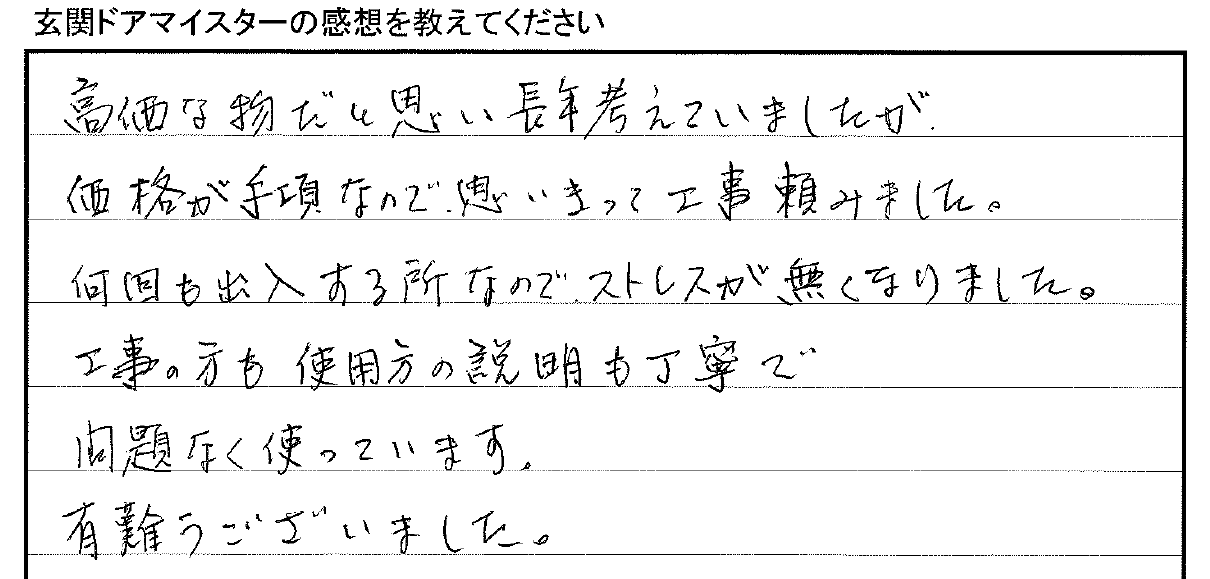 玄関ドアマイスターの感想を教えてください
高価な物だと思い長年考えていましたが、
価格が手項なので、思いきって工事頼みました。
何回も出入する所なので、ストレスが無くなりました。
工事の方も使用方の説明も丁寧で
問題なく使っています。
有難うございました。